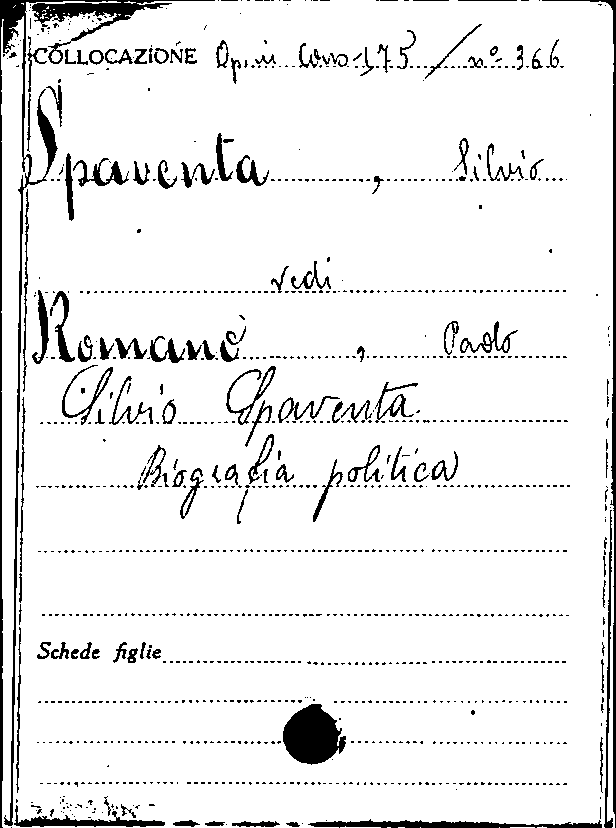 COLLOCAZIONE Op. in Cons. 175 / nº 366
Spaventa, Silvio
vedi
Romano, Paolo
Silvio Spaventa
Biografia politica
Schede figlie